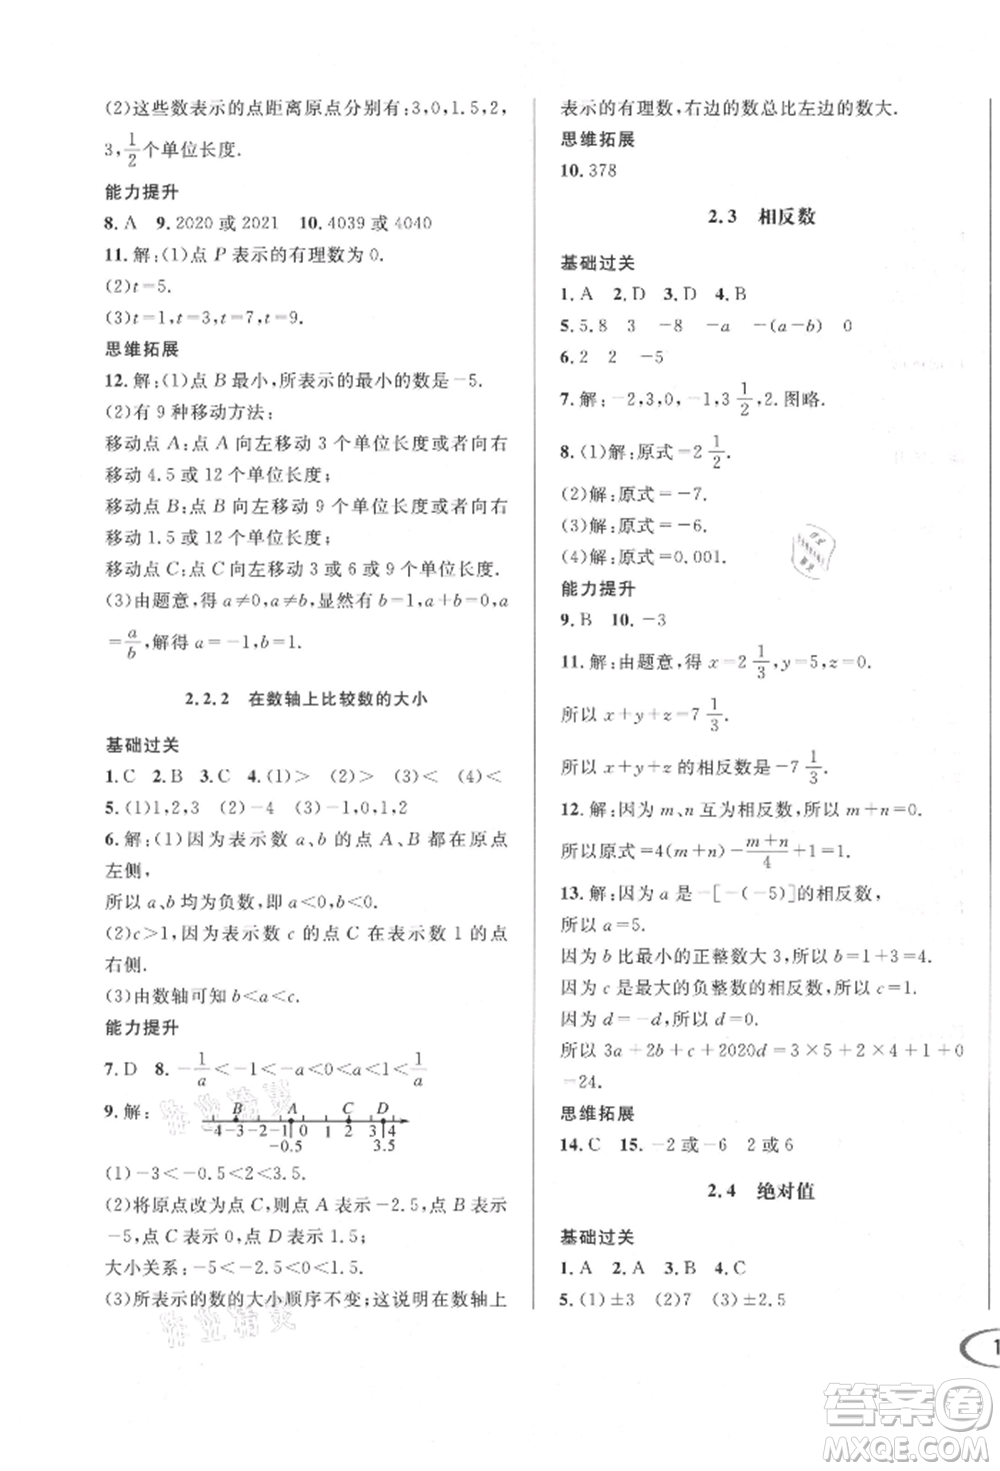 (2)这些数表示的点距离原点分别有:3,0,1.5,2,
3,1/2个单位长度.
能力提升
8.A 9.2020或2021 10.4039或4040
11.解:(1)点 P 表示的有理数为 0.
(2)t=5.
(3)t=1,t=3,t=7,t=9.
思维拓展
12.解:(1)点 B 最小,所表示的最小的数是-5.
(2)有 9 种移动方法:
移动点 A:点 A 向左移动 3 个单位长度或者向右
移动 4.5 或 12 个单位长度;
移动点 B:点 B 向左移动 9 个单位长度或者向右
移动 1.5 或 12 个单位长度;
移动点 C:点 C 向左移动 3 或 6 或 9 个单位长度.
(3)由题意,得 a≠0,a≠b,显然有 b=1,b=a,a
=a/b,解得 a=-1,b=1.
2.2.2 在数轴上比较数的大小
基础过关
1.C 2.B 3.C 4.(1)> (2)> (3)< (4)<
5.(1)1,2,3 (2)-4 (3)-1,0,1,2
6.解:(1)因为表示数 a、b 的点 A、B 都在原点
左侧,
所以 a、b 均为负数,即 a<0,b<0.
(2)c>1,因为表示数 c 的点 C 在表示数 1 的点
右侧.
(3)由数轴可知 b<a<c.
能力提升
7.D 8.-1/a<-1<-a<0<a<1<1/a
9.解:
B A C D
-4 -3 -2 -1 0 1 2 3 4
-0.5 3.5
(1)-3<-0.5<2<3.5.
(2)将原点改为点 C,则点 A 表示-2.5,点 B 表示
-5,点 C 表示 0,点 D 表示 1.5;
大小关系:-5<-2.5<0<1.5.
(3)所表示的数的大小顺序不变;这说明在数轴上
表示的有理数,右边的数总比左边的数大.
思维拓展
10.378
2.3 相反数
基础过关
1.A 2.D 3.D 4.B
5.5.8 3 -8 -a -(a-b) 0
6.2 2 -5
7.解:-2,3,0,-1,3 1/2,2.图略.
8.(1)解:原式=2 1/2.
(2)解:原式=-7.
(3)解:原式=-6.
(4)解:原式=0.001.
能力提升
9.B 10.-3
11.解:由题意,得 x=2 1/3,y=5,z=0.
所以 x+y+z=7 1/3.
所以 x+y+z的相反数是-7 1/3.
12.解:因为 m、n 互为相反数,所以 m+n=0.
所以原式=4(m+n)-(m+n)/4+1=1.
13.解:因为 a 是-[-(-5)]的相反数,
所以 a=5.
因为 b 比最小的正整数大 3,所以 b=1+3=4.
因为 c 是最大的负整数的相反数,所以 c=1.
因为 d=-d,所以 d=0.
所以 3a+2b+c+2020d=3×5+2×4+1+0
=24.
思维拓展
14.C 15.-2或-6 2或6
2.4 绝对值
基础过关
1.A 2.A 3.B 4.C
5.(1)±3 (2)7 (3)±2.5
1
答案卷
MXQE.COM